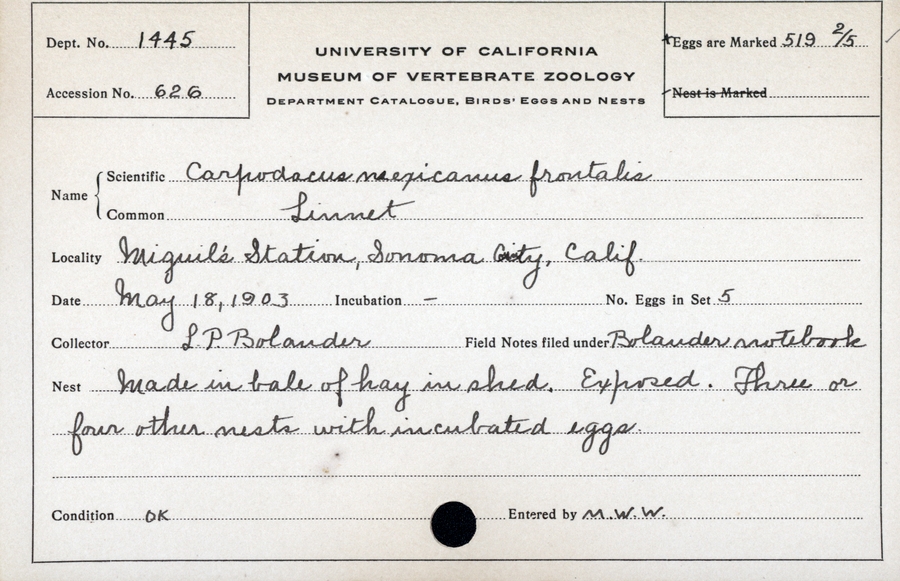 Dept. No. 1445
Accession No. 626
UNIVERSITY OF CALIFORNIA
MUSEUM OF VERTEBRATE ZOOLOGY
DEPARTMENT CATALOGUE, BIRDS' EGGS AND NESTS
Eggs are Marked 519 2/5
Nest is Marked
Name
Scientific Carpodacus mexicanus frontalis
Common Linnet
Locality Miguil's Station, Sonoma City, Calif.
Date May 18, 1903 Incubation – No. Eggs in Set 5
Collector L.P. Bolander Field Notes filed under Bolander notebook
Nest Made in bale of hay in shed. Exposed. Three or
four other nests with incubated eggs.
Condition OK Entered by M.W.W.